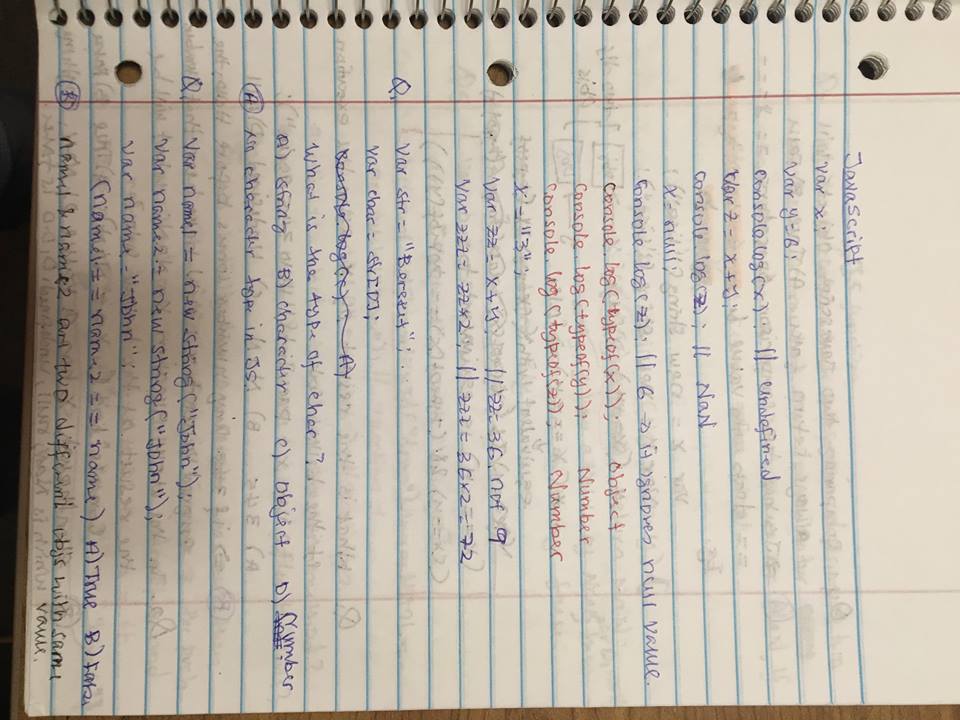 JavaScript
var x;
var y=6;
console.log(x); || undefined
var z = x+y;
console.log(z); || NaN
x=null;
console.log(z); || 6 → it ignores null value.
console.log(typeof(x)); object
console.log(typeof(y)); Number
console.log(typeof(z)); Number
x="3";
var zz = x+y; || zz=36 not 9
var zzz = zz*2; || zzz = 36×2 = 72
Q. var str= "Boreset";
var char = str[1];
What is the type of char?
A) string B) character C) object D) Number
(A) no character type in JS.
Q. var name1 = new string("John");
var name2 = new string("John");
var name = "John";
(name1 == name2 == name) A) True B) False
(B) name1 & name2 are two different objs with same value.